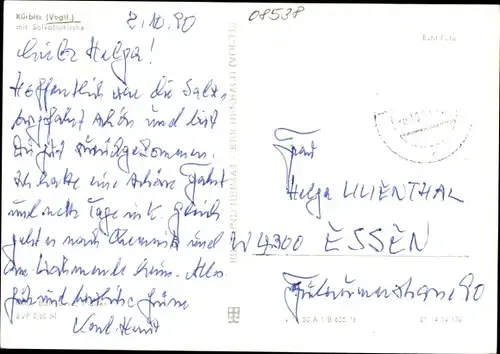 Kürbitz (Vogtl.)
mit Salvatorkirche
2.10.90
08538
Liebe Helga!
Hoffentlich war die Salz-
burgfahrt schön und bist
Du gut zurückgekommen.
Ich hatte eine schöne Fahrt
und nette Tage in K. Gleich
geht es nach Chemnitz und
am Wochenende heim. Alles
Gute und herzliche Grüße
Karl-Heinz
Echt Foto
Frau
Helga LILIENTHAL
W 4300 ESSEN
90